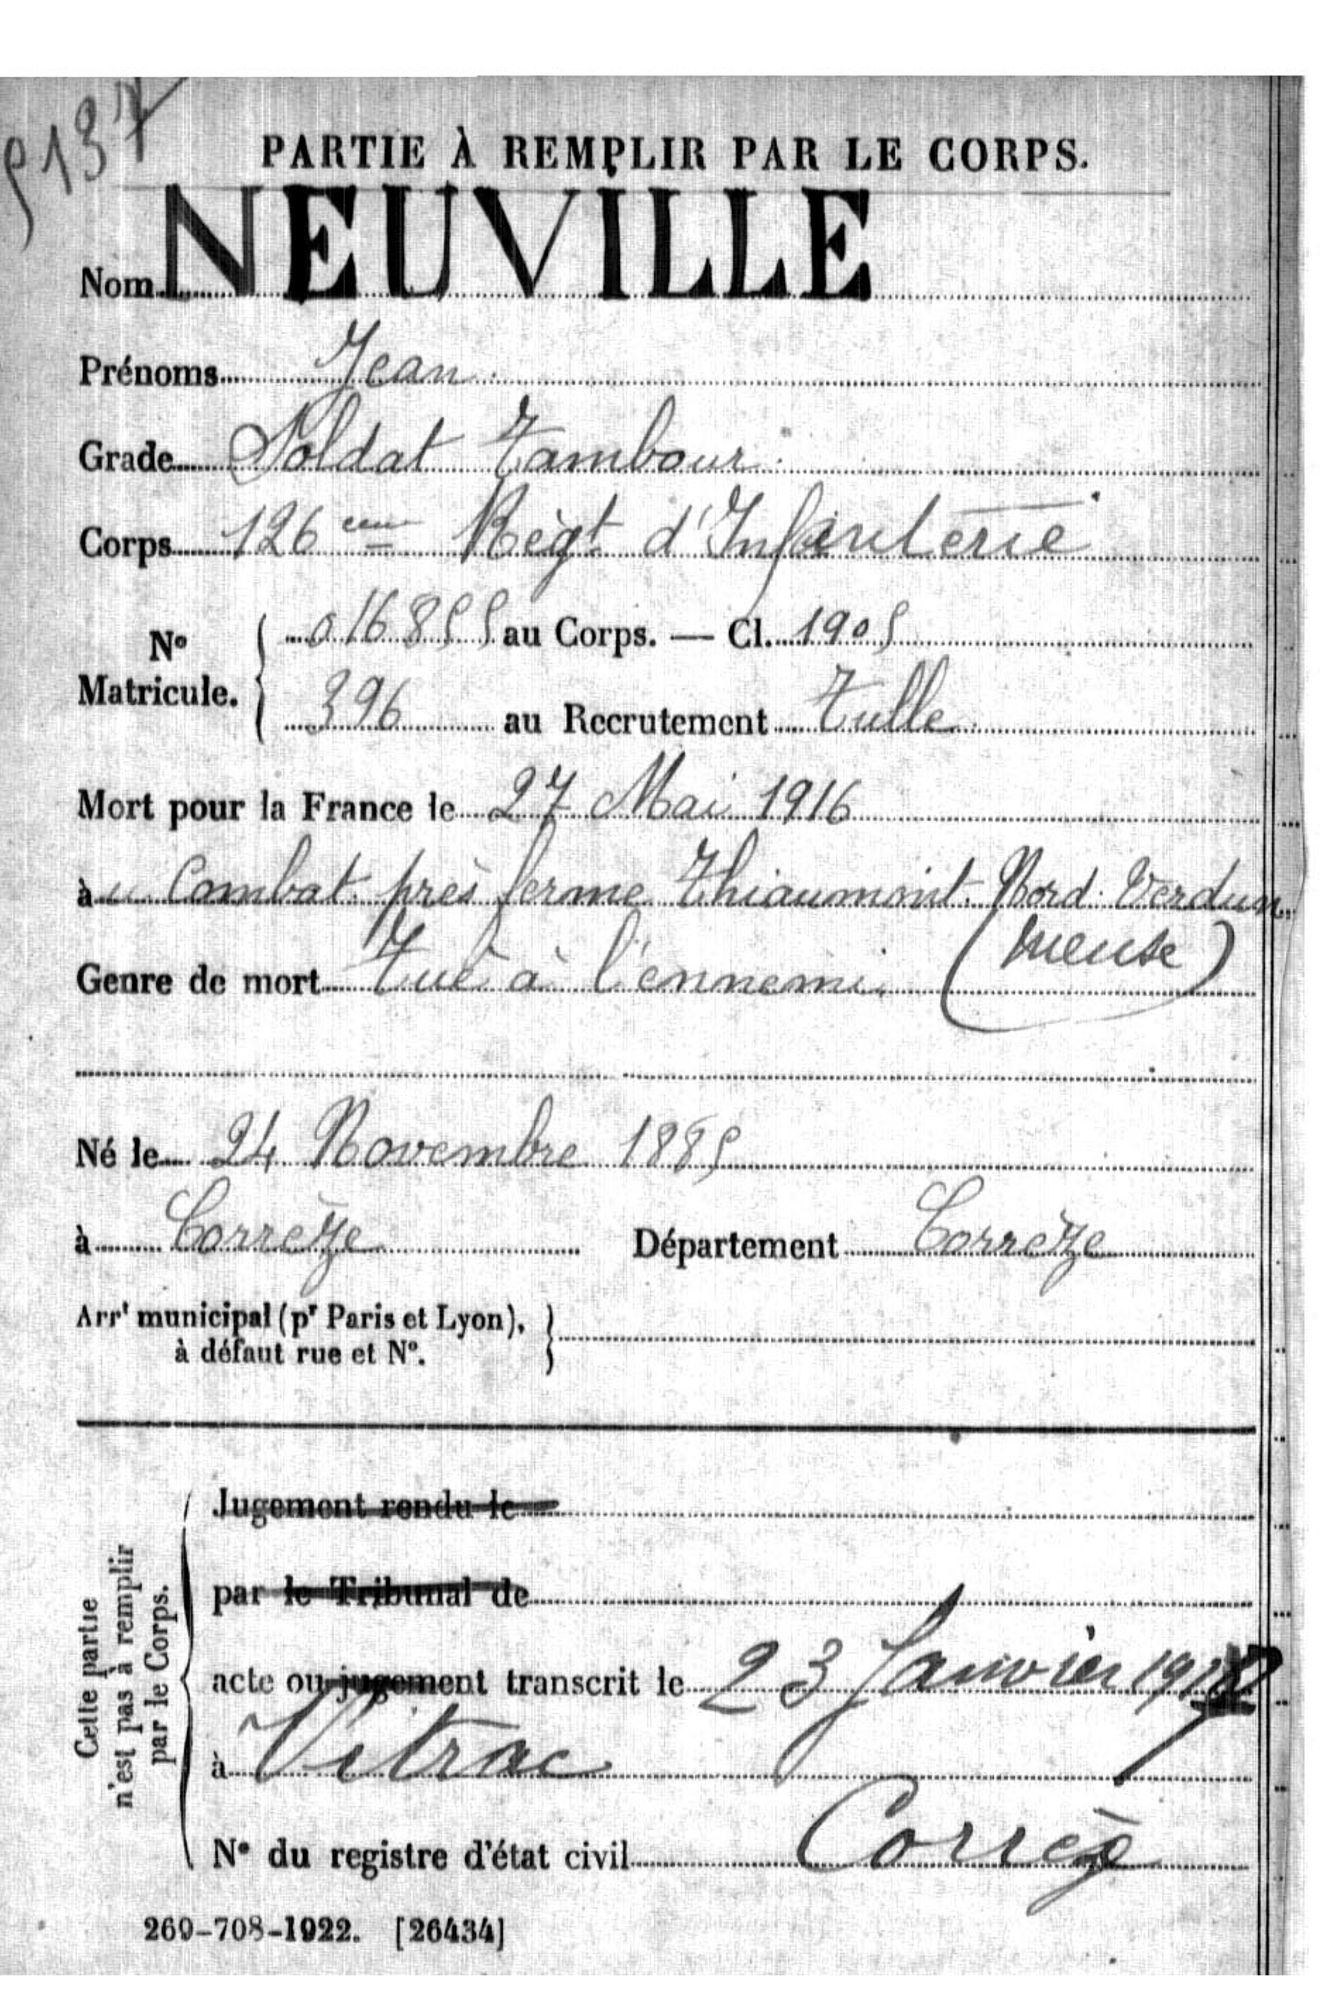 5137
PARTIE À REMPLIR PAR LE CORPS.
Nom NEUVILLE
Prénoms Jean
Grade Soldat Tambour
Corps 126eme Régt d'Infanterie
No Matricule. 016855 au Corps. — Cl. 1905
396 au Recrutement Tulle
Mort pour la France le 27 Mai 1916
àu Combat près ferme Thiaumont Nord Verdun
(Meuse)
Genre de mort Tué à l'ennemi
Né le 24 Novembre 1885
à Corrèze Département Corrèze
Arrt municipal (pr Paris et Lyon),
à défaut rue et No.
Cette partie
n'est pas à remplir
par le Corps.
Jugement rendu le
par le Tribunal de
acte ou jugement transcrit le 23 Janvier
à Vitrac
No du registre d'état civil Corrèze
269-708-1922. [26434]